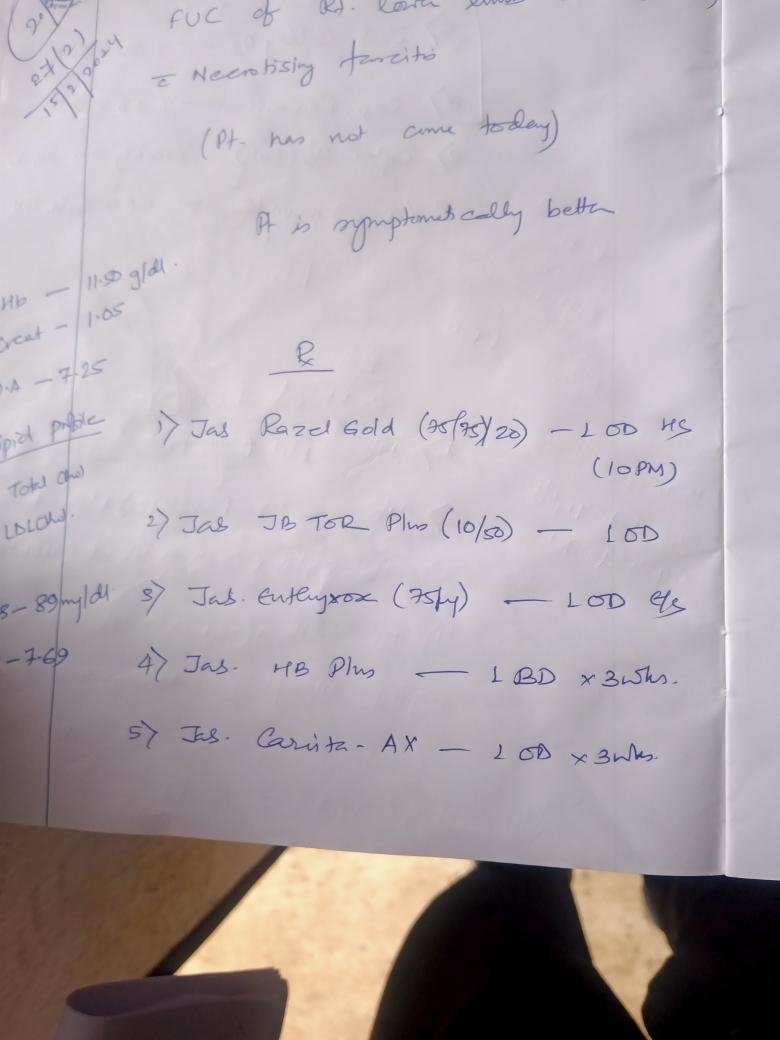 FUC of Rt. lower
27(2)
15/2/2024
c Necrotising fascitis
(Pt- has not come today)
Pt is symptomatically better
Hb — 11.50 g/dl.
Creat - 1.05
U.A — 7.25
Lipid profile
Total Chol
LDL Chol.
89 mg/dl
- 7.69
Rx
1) Tab Razel Gold (75/75/20) — 1 OD HS
(10 PM)
2) Tab JB TOR Plus (10/50) — 1 OD
3) Tab. Euthyrox (75µg) — 1 OD E/S
4) Tab. HB Plus — 1 BD x 3wks.
5) Tab. - AX — 1 OD x 3wks.